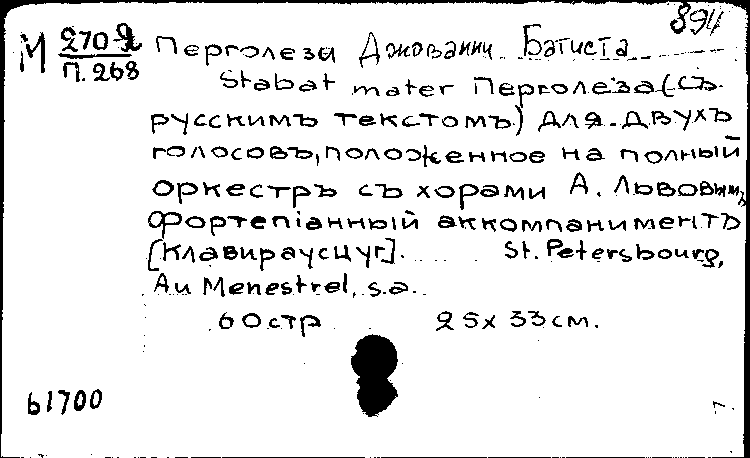 894
М 270-2
П. 268
Перголези Джованни Батиста
Stabat mater Перголеза (съ
русскимъ текстомъ) для двухъ
голосовъ, положенное на полный
оркестръ съ хорами А. Львовымъ
Фортепіанный аккомпаниментъ
[Клавираусцуг]. St. Petersbourg,
Au Menestrel, s.a.
60стр 25х33см.
61700